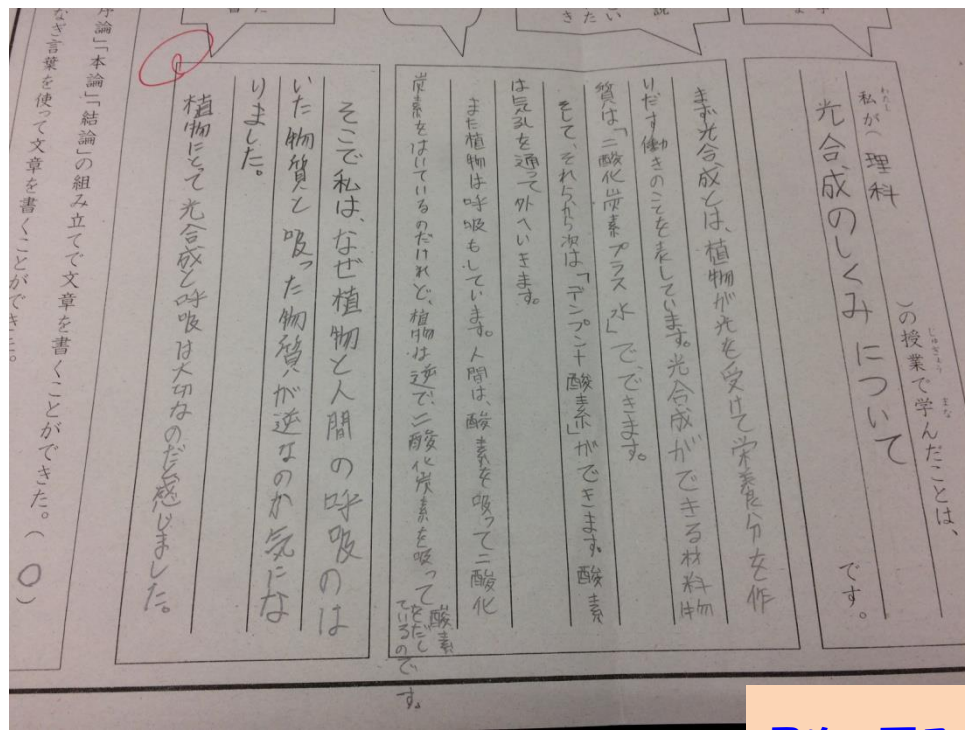 私が(理科)の授業で学んだことは、
光合成のしくみについてです。
まず光合成とは、植物が光を受けて栄養分を作
りだす働きのことを表しています。光合成ができる材料物
質は「二酸化炭素プラス水」で、できます。
そして、それらから次は「デンプン+酸素」ができます。酸素
は気孔を通って外へいきます。
また植物は呼吸もしています。人間は、酸素を吸って二酸化
炭素をはいているのだけれど、植物は逆で、二酸化炭素を吸って酸素をだしているのです。
そこで私は、なぜ植物と人間の呼吸のは
いた物質と吸った物質が逆なのか気にな
りました。
植物にとって光合成と呼吸は大切なのだと感じました。
序論」「本論」「結論」の組み立てで文章を書くことができた。(〇)
なぎ言葉を使って文章を書くことができた。